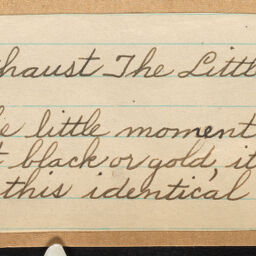 haust The Littl
e little moment
t black or gold, it
this identical